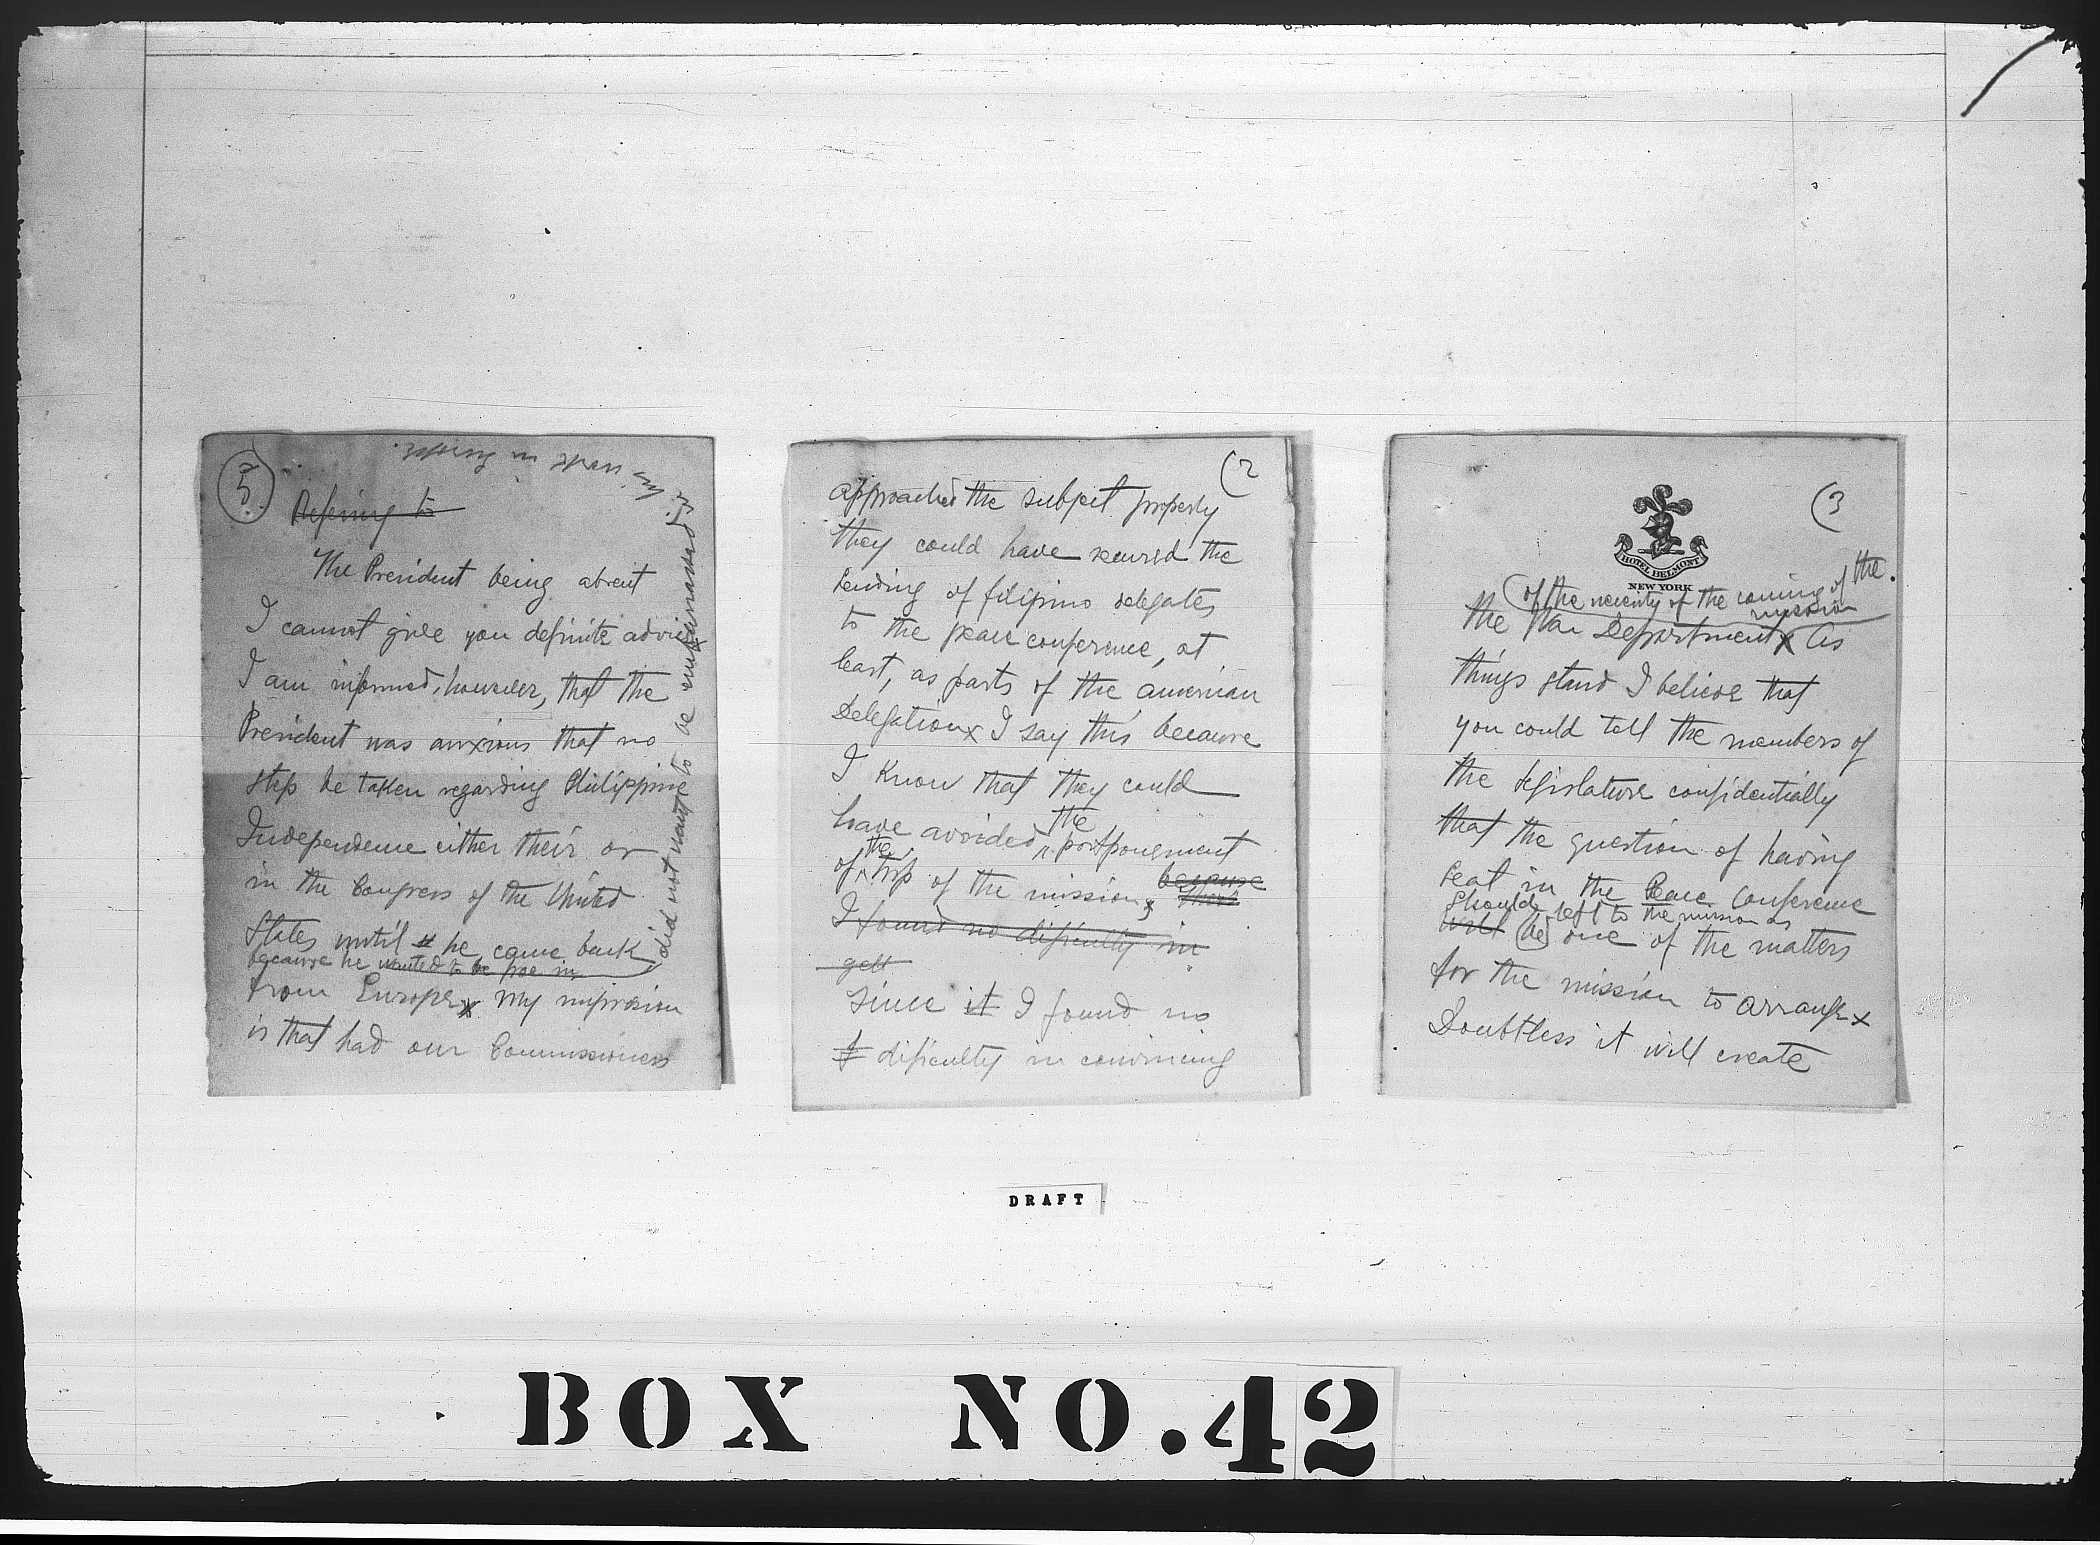 5
Refering to
The President being absent
I cannot give you definite advice x
I am informed, however, that the
President was anxious that no
step be taken regarding Philippine
Independence either their or
in the Congress of the United
States until he came back
because he wanted to be free in
did not want to be embarrassed in
his work in Europe.
from Europe x My impression
is that had our Commissioners
(2
approached the subject properly
they could have secured the
sending of filipino delegates
to the peace conference, at
least, as parts of the american
Delegation x I say this because
I know that they could
the
have avoided postponement
the
of trip of the mission, because
there
I found no difficulty in
gett
since it I found no
I difficulty in convincing
(3
HOTEL BELMONT
NEW YORK
of the necesity of the coming of the
mission
the War Department x As
things stand I believe that
you could tell the members of
the legislature confidentially
that the question of having
seat in the Peace Conference
should left to the mission as
will be one of the matters
for the mission to arrange x
Doubtless it will create
DRAFT
BOX NO. 42